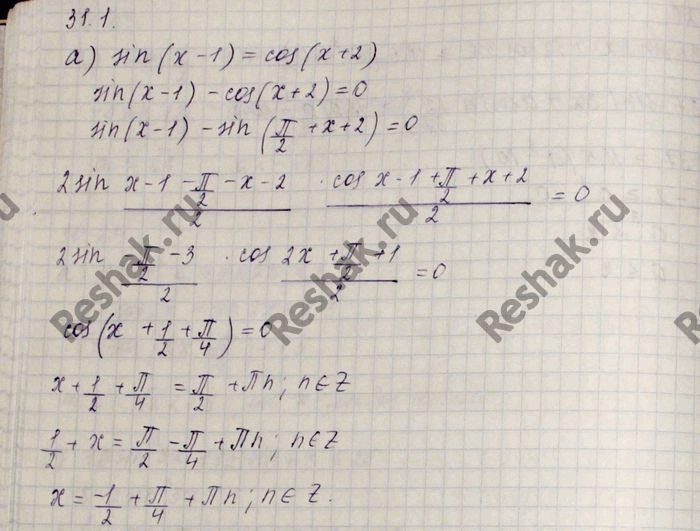 31.1.
а) sin(x-1) = cos(x+2)
sin(x-1) - cos(x+2) = 0
sin(x-1) - sin(π/2 + x+2) = 0
2sin (x-1-π/2-x-2)/2 · cos (x-1+π/2+x+2)/2 = 0
2sin (π/2 - 3)/2 · cos (2x + π/2 + 1)/2 = 0
cos(x + 1/2 + π/4) = 0
x + 1/2 + π/4 = π/2 + πn; n∈Z
1/2 + x = π/2 - π/4 + πn; n∈Z
x = -1/2 + π/4 + πn; n∈Z.
Reshak.ru
Reshak.ru
Reshak.ru